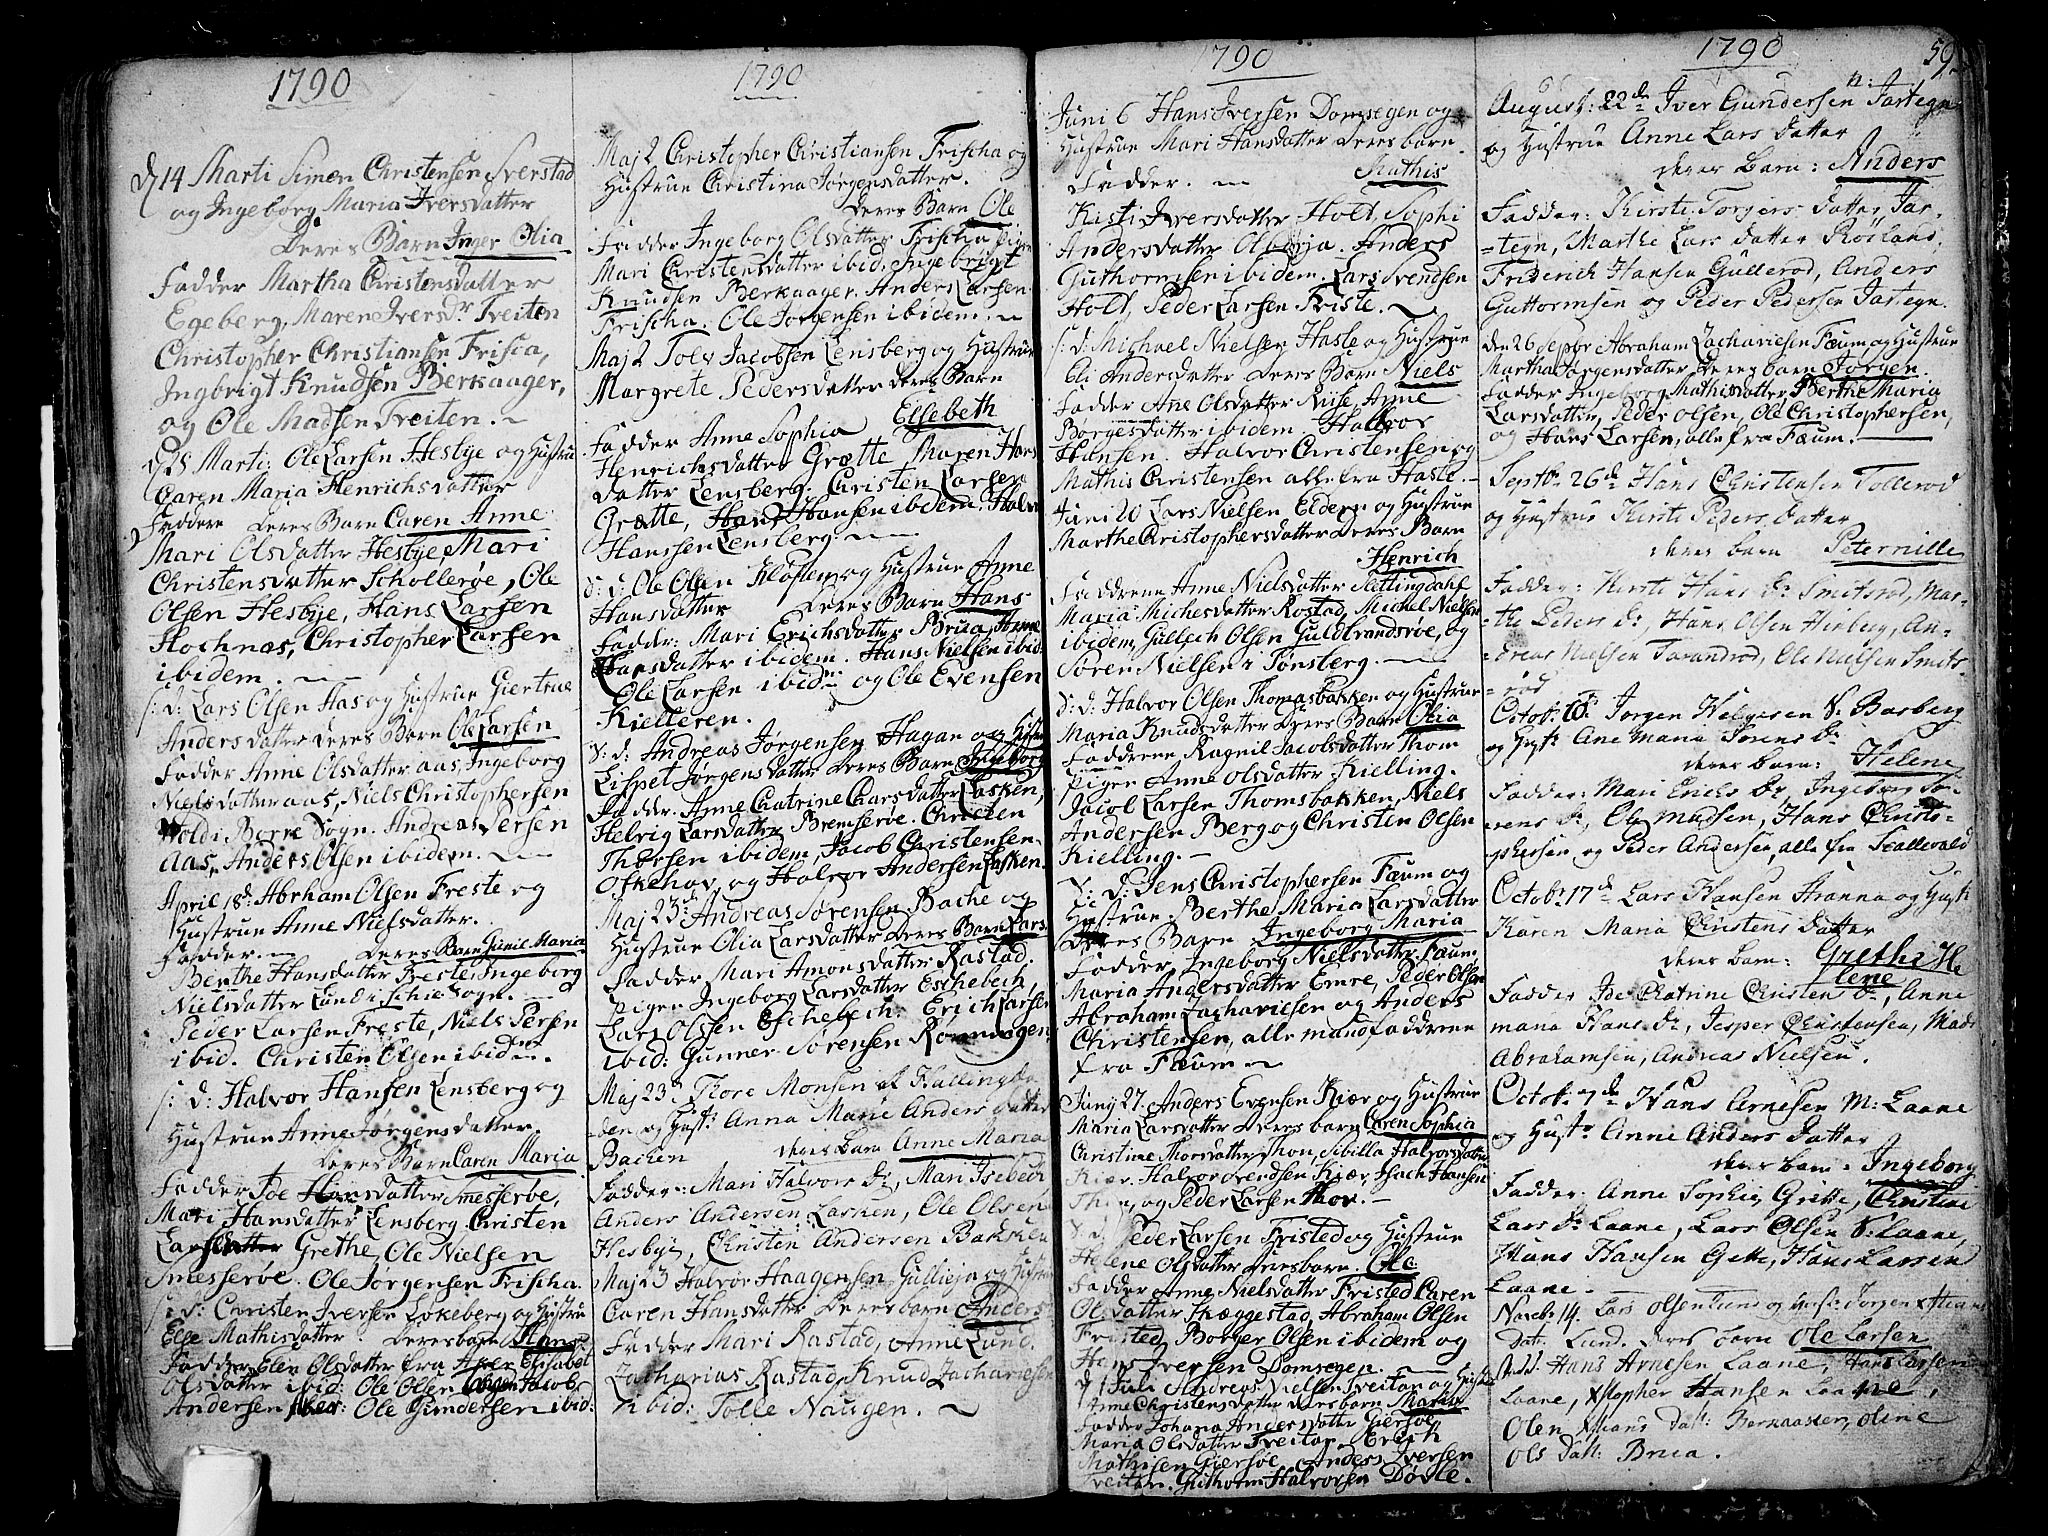 1790
D 14 Marti Simon Christensen Sverstad
og Ingeborg Maria Iversdatter
Deres Barn Inger Olia
Fadder Martha Christensdatter
Egeberg, Maren Ivers Dr Treiten
Christopher Christiansen Friscia,
Ingbrigt Knudsen Berkaager,
og Ole Madsen Treiten. ~
D 25 Marti: Ole Larsen Hesbye og Hustru
Caren Maria Henrichsdatter
Faddere Deres Barn Caren Anne
Mari Olsdatter Hesbye, Mari
Christensdatter Schollerøe, Ole
Olsen Hesbye, Hans Larsen
Hochnæs, Christopher Larsen
ibidem.
s: d: Lars Olsen Aas og Hustrue Giertrue
Andersdatter Deres Barn Ole Larsen
Fadder Anne Olsdatter aas, Ingeborg
Nielsdatter aas, Niels Christophersen
Wold i Borre Sogn. Andreas Persen
Aas, Anders Olsen ibidem.
April 18d: Abrham Olsen Freste og
Hustrue Anne Nielsdatter.
Fadder. Deres Barn Gunil Maria
Berthe Hansdatter Freste, Ingeborg
Nielsdatter Lund i Schie Sogn.
Peder Larsen Freste, Niels Persen
ibid. Christen Olsen ibidm.
s: d: Halvor Hansen Lensberg og
Hustrue Anne Jørgensdatter.
Deres Barn Caren Maria
Fadder Ide Hansdatter Smesserøe,
Mari Hansdatter Lensberg, Christen
Larsdatter Grethe, Ole Nielsen
Smesserøe. Ole Jørgensen Frischa.
s: d: Christen Iversen Løkeberg og Hustru
Else Mathisdatter Deres barn Hans
Fadder Elen Olsdatter fra Aker Elisabet
Olsdatter ibid: Ole Olsen Jacob
Andersen Aker: Ole Gundersen ibid:
1790
Maj 2 Christopher Christiansen Frischa og
Hustrue Christina Jørgensdatter.
Deres Barn Ole
Fadder Ingeborg Olsdatter Frischa Pigen
Mari Christensdatter ibid. Ingebrigt
Knudsen Berkaager, Anders Larsen
Frischa. Ole Jørgensen ibidem. ~
Maj 2 Tolv Jacobsen Lensberg og Hustrue
Margrete Pedersdatter deres Barn
Elsebeth
Fadder Anne Sophia
Henrichsdatter Grætte, Maren Hans
datter Lensberg. Christen Larsen
Grætte, Hans Hansen ibidem, Halvor
Hanssen Lensberg.
S: d: Ole Olsen Kløften og Hustrue Anne
Hansdatter Deres Barn Hans
Fadder: Mari Erichsdatter Brua, Anne
Larsdatter ibidem. Hans Nielsen ibid:
Ole Larsen ibidm og Ole Evensen
Kielleren.
S: d: Andreas Jørgensen Hagan og Hustru
Lispet Jørgensdatter Deres Barn Ingeborg
Fadder. Anne Chatrine Charsdatter Lasken,
Helvig Larsdatter Bremserøe. Christen
Thorsen ibidem, Jacob Christensen
Ofkehav og Halvor Andersen Lasken.
Maj 23d: Andreas Sørensen Bache og
Hustrue Olia Larsdatter Deres Barn Lars.
Fadder Mari Amonsdatter Rastad.
Pigen Ingeborg Larsdatter Eschebech,
Lars Olsen Eschebech: Erich Larsen
ibid: Gunner Sørensen Romnogen:
Maj 23d Thore Monsen af Hallingda
len og Hust: Anna Marie Anders datter
Backen deres barn Anne Maria
Fadder: Mari Halvors Dr, Mari Isebech
Anders Andersen Lasken, Ole Olsen
Hesbye, Christen Andersen Bakken
Maj 23 Halvor Haagensen Gullieja og Hustru
Caren Hansdatter Deres barn Anders
Fadder Mari Rastad, Anne Lund.
Zacharias Rastad, Knud Zachariesen
ibid: Tolle Naugen. ~
1790
Juni 6 Hans Iversen Domsegen og
Hustrue Mari Hansdatter Deres barn.
Fadder. ~ Mathis
Kisti Iversdatter Holt, Sophi
Andersdatter Olveja. Anders
Guthormsen ibidem. Lars Svendsen
Holt, Peder Larsen Friste.
s: d: Michael Nielsen Hasle og Hustrue
Eli Andersdatter Deres Barn Niels
Fadder Ane Olsdatter Rise, Anne
Børgesdatter ibidem. Halvor
Hansen. Halvor Christensen og
Mathis Christensen alle fra Hasle.
Juni 20 Lars Nielsen Eldern og Hustrue
Marthe Christophersdatter Deres Barn
Henrich
Faddrene Anne Nielsdatter Slettingdahl
Maria Michelsdatter Rostad, Michel Nielsen
ibidem, Gullech Olsen Guldbrandsrøe, og
Søren Nielsen i Tønsberg. ~
S: d: Halvor Olsen Thomasbakken og Hustrue
Maria Knudsdatter Deres Barn Olia
Faddrene, Ragnil Jacobsdatter Thom
Pigen Anna Olsdatter Kielling.
Jacob Larsen Thomsbakken, Niels
Andersen Berg og Christen Olsen
Kielling. ~
S: d: Jens Christophersen Fæum og
Hustrue Berthe Maria Larsdatter
Deres Barn Ingeborg Maria
Fadder Ingeborg Nielsdatter Fæum
Maria Andersdatter Emre, Peder Olsen
Abraham Zachariesen og Anders
Christensen, alle mandfadderne
fra Fæum ~
Juny 27. Anders Evensen Kiær og Hustrue
Maria Larsdatter Deres barn Caren Sophia
Christine Thorsdatter Thon, Sibilla Halvorsdatter
Kiær. Halvor Kiær, Isach Hansen
og Peder Larsen Thor. ~
S: d: Peder Larsen Fristed og Hustrue
Helene Olsdatter Deres barn. Ole:
Fadder Anne Nielsdatter Fristed Caren
Olsdatter Skæggestad, Abraham Olsen
Fristed, Børger Olsen ibidem og
Hans Iversen Domsegen.
D 1 Juli Andreas Nielsen Treiten og Hustru
Anne Christensdatter Deres barn Maria
Fadder Johana Andersdatter Giersøe,
Maria Olsdatter Treiten. Erich
Mathisen Giersøe, Anders Iversen
Treiten. Guthorm Halvorsen Døvle.
1790 59
August: 22de Iver Gundersen n: Jartegn
og Hustrue Anne Lars datter
deres barn: Anders
Fadder: Kirste Torgers datter Jar-
-tegn, Marthe Lars datter Røsland,
Friderich Hansen Gullerød, Anders
Guttormsen og Peder Pedersen Jartegn.
den 26 Sepbr Abraham Zachariesen Fæum, og Hustrue
Martha Jørgensdatter Deres barn Jørgen.
Fadder Ingeborg Mathisdatter, Berthe Maria
Larsdatter, Peder Olsen, Ole Christophersen,
og Hans Larsen, alle fra Fæum.
Septbr 26de Hans Christensen Tollerød
og Hustrue Kirste Peders datter
deres barn Peternille
Fadder: Kirste Hans Dr Smitsrød, Mar-
the Peders Dr, Hans Olsen Herberg, An-
dreas Nielsen Tarandrød, Ole Nielsen Smits-
-rød
Octob: 10 Jørgen Helgesen S: Basberg
og Hust: Ane Maria Sørens Dr
deres barn: Helene
Fadder: Mari Erichs Dr, Ingeborg Sø-
rens Dr, Ole Madsen, Hans Christo-
phersen og Peder Andersen, alle fra Skallevold
Octobr 17de Lars Hansen Stranna og Hust:
Karen Maria Christens datter
deres barn: Grethe He
lene
Fadder Ide Catrine Christen Dr, Anne
Maria Hans Dr, Jesper Christensen, Mads
Abrahamsen, Andreas Nielsen.
Octobr 7de Hans Arnesen M: Laane
og Hustr Anne Anders datter
deres barn Ingeborg
Fadder: Anne Sophie Grette, Christine
Lars Dr Laane, Lars Olsen S: Laane,
Hans Hansen Gette, Hans Larsen
Laane.
Novebr 14. Lars Olsen og Hust: Jørgen
Dat: Lund. deres barn Ole Larsen
Fadd: Hans Arnesen Laane, Hans Larsen
Laane, Xstopher Hansen Laane,
Olen Xstians Datt: Berkaasen, Oline
Ols Datt: Brua.